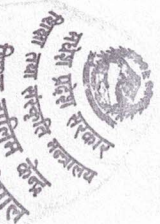 मधेश प्रदेश सरकार
शिक्षा तथा संस्कृति मन्त्रालय
शिक्षा तालिम केन्द्र